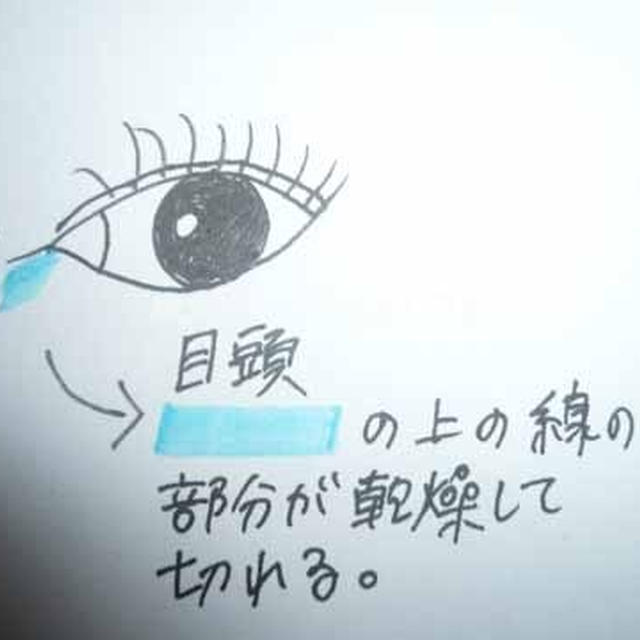 目頭
の上の線の
部分が乾燥して
切れる。